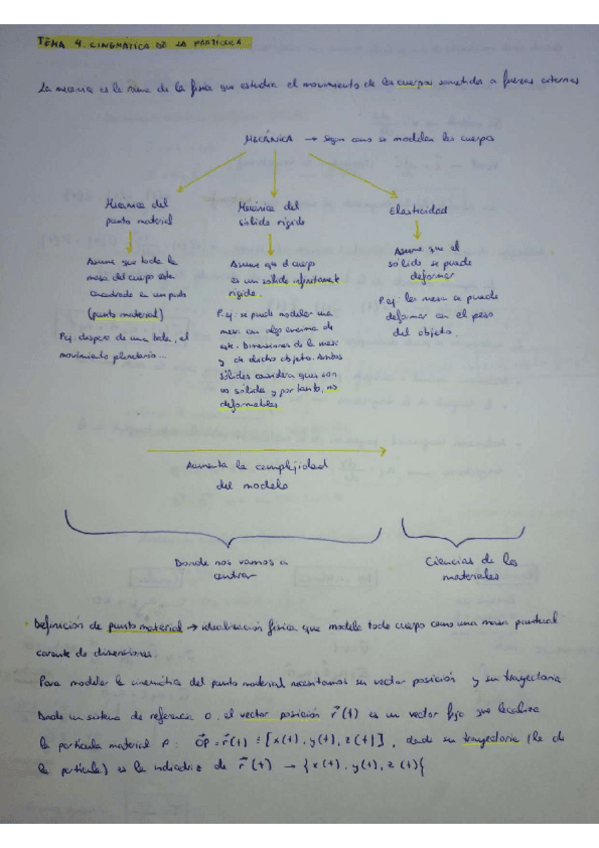 TEMA 4. CINEMÁTICA DE LA PARTÍCULA
La mecánica es la rama de la física que estudia el movimiento de los cuerpos sometidos a fuerzas externas
MECÁNICA → Según como se modelan los cuerpos
Mecánica del
punto material
Asume que toda la
masa del cuerpo está
concentrada en un punto
(punto material)
P.ej. disparo de una bala, el
movimiento planetario...
Mecánica del
sólido rígido
Asume que el cuerpo
es un sólido infinitamente
rígido.
P.ej. se puede modelar una
mesa con algo encima de
este. Dimensiones de la mesa
y de dicho objeto. Ambos
sólidos considera que son
un sólido y por tanto, no
deformables.
Elasticidad
Asume que el
sólido se puede
deformar
P.ej. la mesa se puede
deformar con el peso
del objeto.
Aumenta la complejidad
del modelo
Donde nos vamos a
centrar
Ciencias de los
materiales
Definición de punto material → idealización física que modela todo cuerpo como una masa puntual
carente de dimensiones.
Para modelar la cinemática del punto material necesitamos su vector posición y su trayectoria
Dado un sistema de referencia O, el vector posición r⃗(t) es un vector fijo que localiza
la partícula material P: O⃗P = r⃗(t) = [x(t), y(t), z(t)], donde su trayectoria (la de
la partícula) es la indicatriz de r⃗(t) → {x(t), y(t), z(t)}